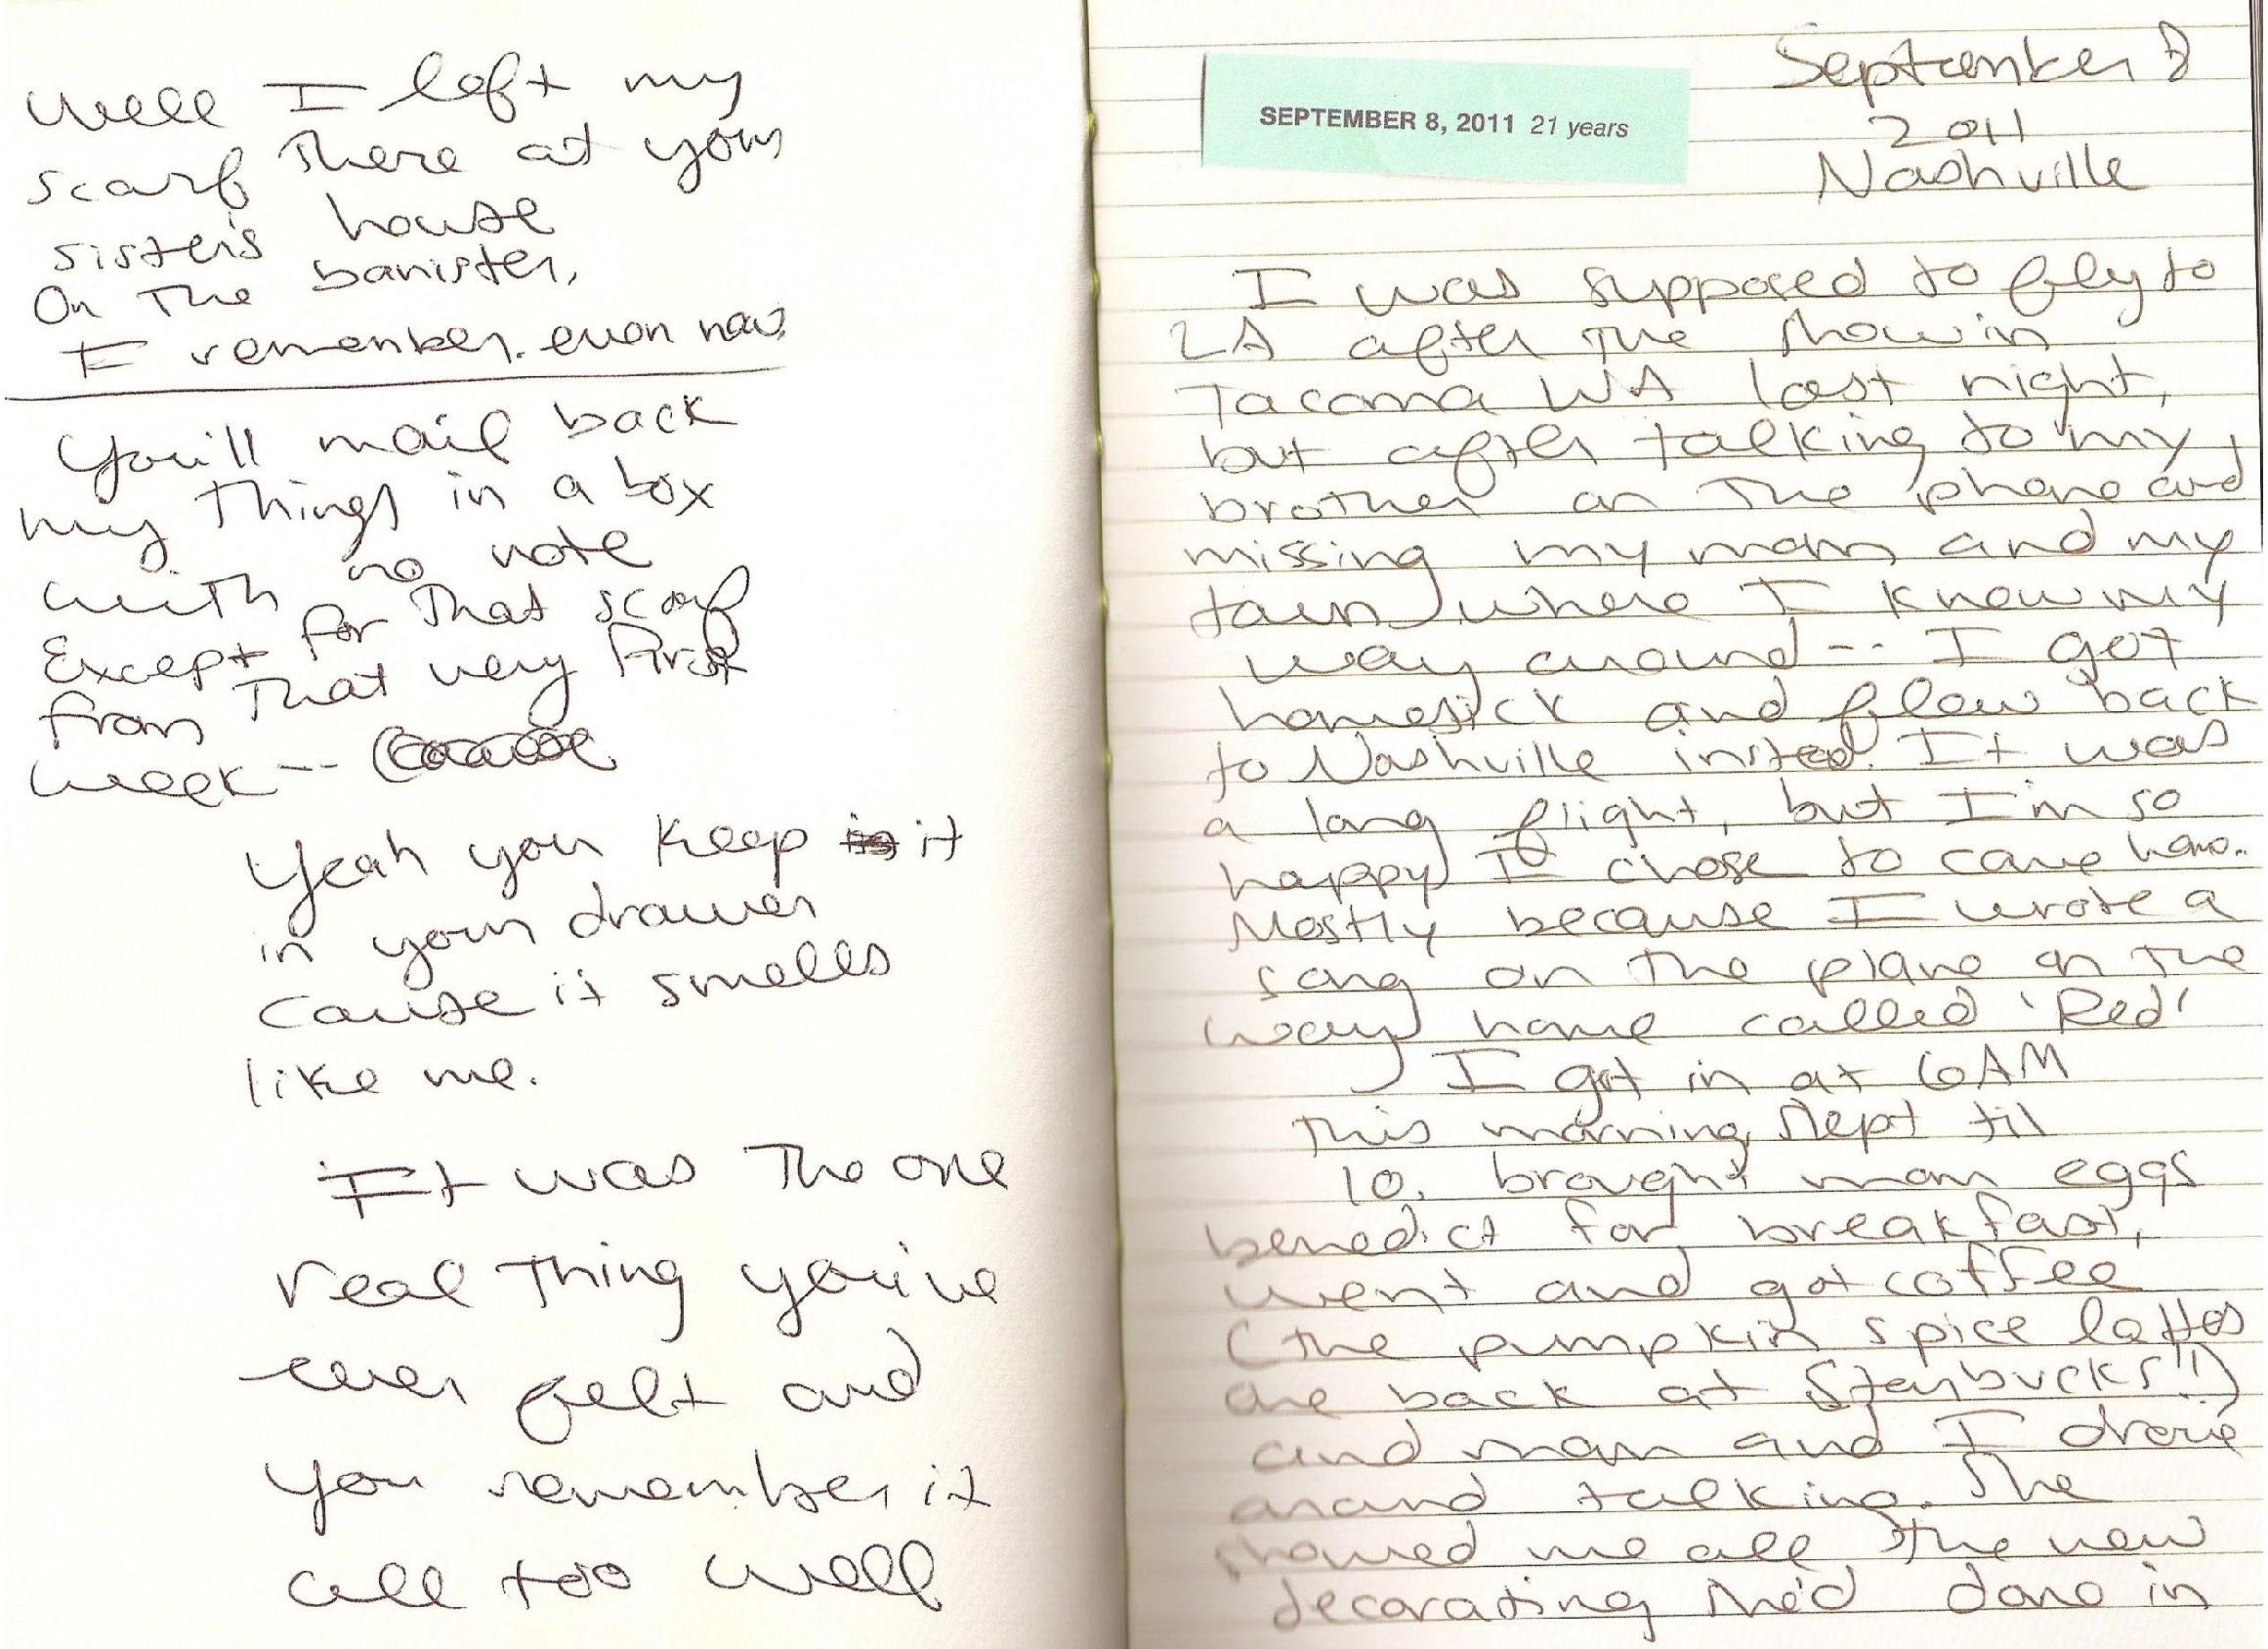 Well I left my
scarf there at your
sister's house
On the banister,
I remember. even now.
You'll mail back
my things in a box
with no note
Except for that scarf
from that very first
week--
Yeah you keep it
in your drawer
Cause it smells
like me.
It was the one
real thing you've
ever felt and
you remember it
all too well
SEPTEMBER 8, 2011 21 years
September 8
2011
Nashville
I was supposed to fly to
LA after the show in
Tacoma WA last night,
but after talking to my
brother on the phone and
missing my mom and my
town where I know my
way around -- I got
homesick and flew back
to Nashville insted. It was
a long flight, but I'm so
happy I chose to come home.
Mostly because I wrote a
song on the plane on the
way home called 'Red'
I got in at 6AM
this morning, slept til
10. brought mom eggs
benedict for breakfast,
went and got coffee
(the pumpkin spice lattes
are back at Starbucks!!)
and mom and I drove
around talking. She
showed me all the new
decorating she'd done in